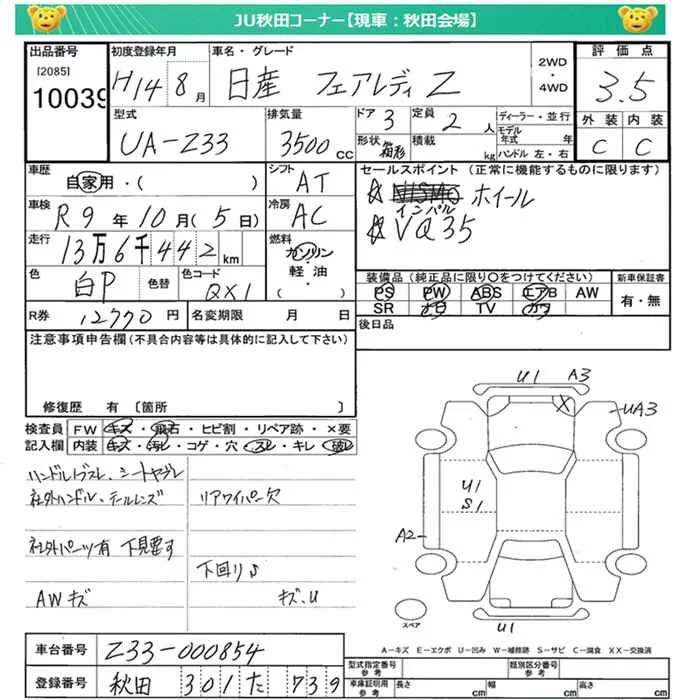 JU秋田コーナー【現車：秋田会場】
出品番号
[2085]
10039
初度登録年月
H14 8月
車名・グレード
日産 フェアレディZ
2WD・4WD
評価点
3.5
外装 内装
C C
型式
UA-Z33
排気量
3500cc
ドア 3
形状 箱形
定員 2人
積載 kg
ディーラー・並行
モデル年式 年
ハンドル 左・右
車歴
自家用・( )
シフト
AT
車検
R9年10月(5日)
冷房
AC
走行
13万6千442km
燃料
ガソリン
軽油
( )
色
白P
色替
色コード
QX1
R券 12770円
名変期限 月 日
セールスポイント(正常に機能するものに限ります)
☆NISMO ホイール
インパル
☆VQ35
装備品(純正品に限り○をつけてください)
PS PW ABS エアB AW
SR ナビ TV カワ
新車保証書
有・無
後日品
注意事項申告欄(不具合内容等は具体的に記入して下さい)
修復歴 有 〔箇所 〕
検査員記入欄
FW キズ・飛石・ヒビ割・リペア跡・×要
内装 キズ・汚レ・コゲ・穴・スレ・キレ・破レ
ハンドルスレ、シートヤブレ
社外ハンドル、テールレンズ
リアワイパー欠
社外パーツ有 下見要す
下回りS
AWキズ
キズ、U
U1 A3
X
UA3
U1
S1
A2
U1
スペア
A-キズ E-エクボ U-凹み W-補修跡 S-サビ C-腐食 XX-交換済
車台番号
Z33-000854
登録番号
秋田 301 た 739
型式指定番号 参考
類別区分番号 参考
車庫証明用 参考
長さ cm
幅 cm
高さ cm